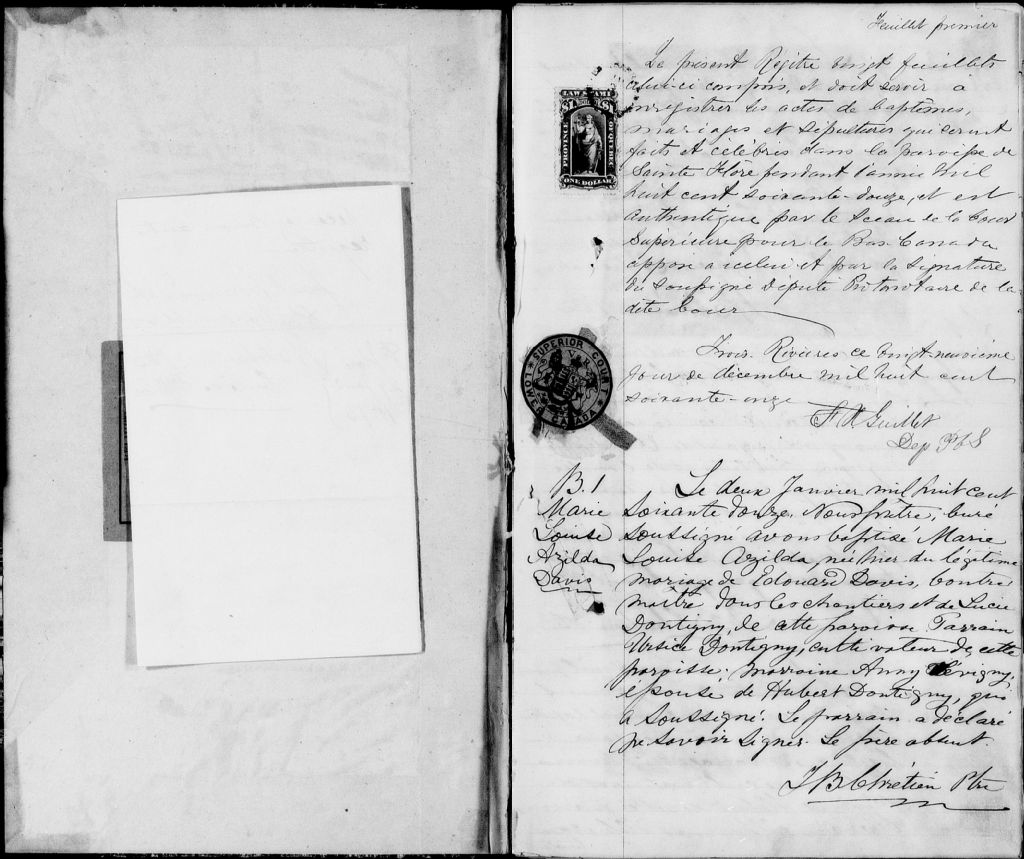 Feuillet premier
Le present Régitre vingt feuillets
celui-ci compris, et doit servir à
enregistrer les actes de baptêmes,
mariages et sépultures qui seront
faits et célébrés dans la paroisse de
Sainte Flore pendant l'année mil
huit cent soixante-douze, et est
authentiqué par le sceau de la Cour
Supérieure pour le Bas-Canada
apposé à icelui et par la signature
du Soussigné Député Protonotaire de la
dite Cour
LAW STAMP
$1 $1
PROVINCE OF QUEBEC
ONE DOLLAR
Trois-Rivières ce vingt-neuvième
jour de décembre mil huit cent
soixante-onze
SUPERIOR COURT
LOWER CANADA
Guillet
Dep P C S
B. 1
Marie
Louise
Azilda
Davis
Le deux Janvier mil huit cent
soixante douze, Nous prêtre, curé
soussigné avons baptisé Marie
Louise Azilda, née hier du légitime
mariage de Edouard Davis, contre
maître dans les chantiers et de Lucie
Dontigny, de cette paroisse Parrain
Ursice Dontigny, cultivateur de cette
paroisse; marraine Anny Sévigny,
épouse de Hubert Dontigny, qui
a soussigné. Le parrain a déclaré
ne savoir signer. Le père absent.
J B Chrétien Ptre